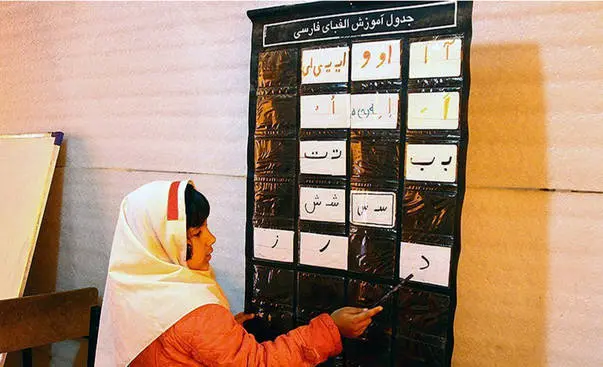 جدول آموزش الفبای فارسی
آ ا او و ایـ یـ ی ای
اَ ـَ اِ ـِ ه اُ ـُ
بـ ب تـ ت
سـ س شـ ش
د ر ز